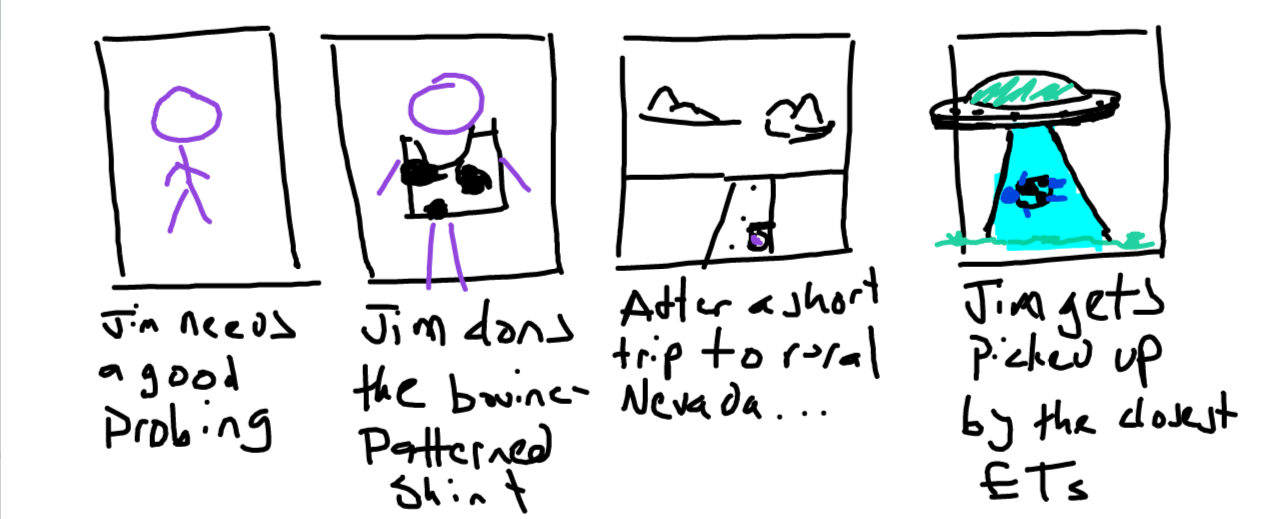 Jim needs
a good
Probing
Jim dons
the bovine-
Patterned
Shirt
After a short
trip to rural
Nevada...
Jim gets
Picked up
by the closest
ETs